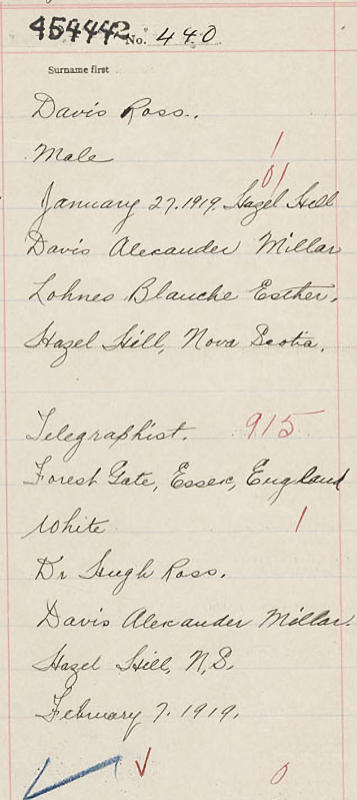 454442 No. 440
Surname first
Davis Ross.
Male
1
01
January 27. 1919. Hazel Hill
Davis Alexander Millar
Lohnes Blanche Esther.
Hazel Hill, Nova Scotia.
Telegraphist. 915
Forest Gate, Essex, England
White 1
Dr Hugh Ross.
Davis Alexander Millar.
Hazel Hill, N.S.
February 7. 1919.
0